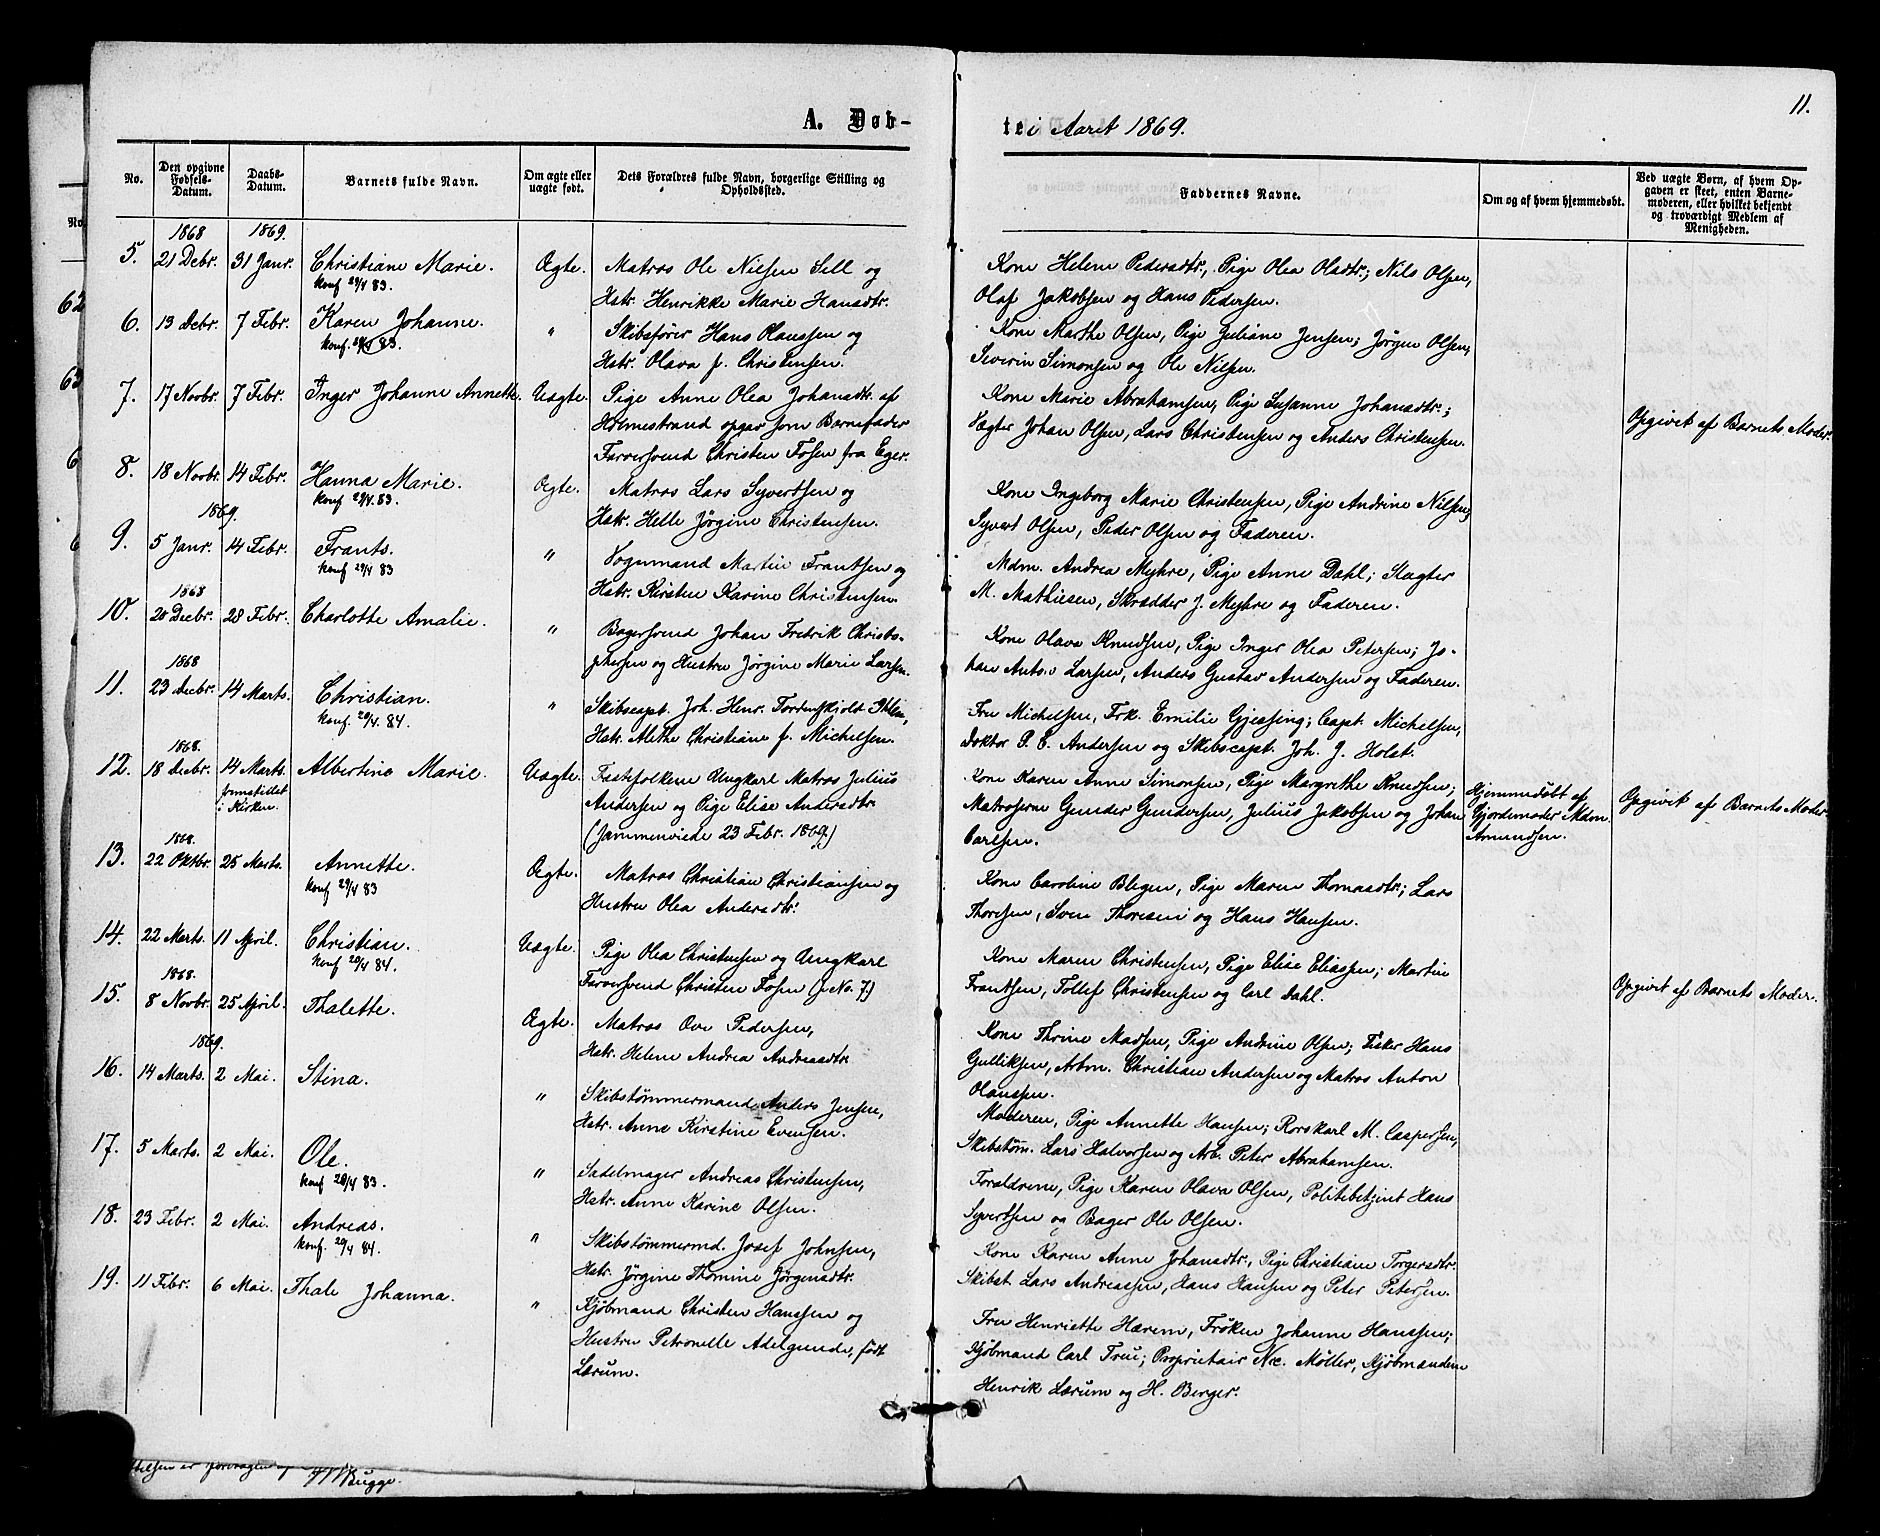 11.
A. Døb-
te i Aaret 1869.
No.
Den opgivne Fødsels-Datum.
Daabs-Datum.
Barnets fulde Navn.
Om ægte eller uægte født.
Dets Forældres fulde Navn, borgerlige Stilling og Opholdssted.
Faddernes Navne.
Om og af hvem hjemmedøbt.
Ved uægte Børn, af hvem Opgaven er skeet, enten Barnemoderen, eller hvilket bekjendt og troværdigt Medlem af Menigheden.
1868 1869.
5. 21 Debr. 31 Janr. Christiane Marie. Ægte. Matros Ole Nilsen Sell og
konf 29/4 83. Hstr. Henrikke Marie Hansdtr.
Kone Helene Pedersdtr., Pige Olea Olsdtr.; Nils Olsen,
Olaf Jakobsen og Hans Pedersen.
6. 13 Debr. 7 Febr. Karen Johanne. " Skibsfører Hans Olaussen og
konf. 29/4 83. Hstr. Olava f. Christensen.
Kone Marthe Olsen, Pige Juliane Jensen; Jørgen Olsen,
Severin Simonsen og Ole Nilsen.
7. 17 Novbr. 7 Febr. Inger Johanne Annette. Uægte. Pige Anne Olea Johansdtr. af
Holmestrand opgav som Barnefader
Farversvend Christen Fosen fra Eger.
Kone Marie Abrahamsen, Pige Susanne Johansdtr.;
Vægter Johan Olsen, Lars Christensen og Anders Christensen.
Opgivet af Barnets Moder.
8. 18 Novbr. 14 Febr. Hanna Marie. Ægte. Matros Lars Syvertsen og
konf 29/4 83. Hstr. Helle Jørgine Christensen.
Kone Ingeborg Marie Christensen, Pige Andrine Nilsen,
Syvert Olsen, Peder Olsen og Faderen.
1869.
9. 5 Janr. 14 Febr. Frants. " Vognmand Martin Frantsen og
konf 29/4 83 Hstr. Kirsten Karine Christensen.
Mdm. Andrea Myhre, Pige Anne Dahl; Slagter
M. Mathiesen, Skrædder J. Myhre og Faderen.
1868
10. 20 Decbr. 28 Febr. Charlotte Amalie. " Bagersvend Johan Fredrik Christo-
phersen og Hustru Jørgine Marie Larsen.
Kone Olava Knudsen, Pige Inger Olea Petersen; Jo-
han Anton Larsen, Anders Gustav Andersen og Faderen.
1868
11. 23 Decbr. 14 Marts. Christian. " Skibscapt. Joh. Henr. Tordenskjold Ihlen,
konf. 20/4. 84. Hstr. Alethe Christiane f. Michelsen.
Fru Michelsen, Frk. Emilie Gjessing; Capt. Michelsen,
Doktor P. C. Andersen og Skibscapt. Joh. J. Holst.
1868.
12. 18 Decbr. 14 Marts. Albertine Marie. Uægte. Festefolkene Ungkarl Matros Julius
fremstillet Andersen og Pige Elise Andersdtr.
i Kirken. (Sammenviede 23 Febr. 1869.)
Kone Karen Anne Simonsen, Pige Margrethe Knudsen;
Matroserne Gunder Gundersen, Julius Jakobsen og Johan
Carlsen.
Hjemmedøbt af
Gjordemoder Mdm.
Amundsen.
Opgivet af Barnets Moder
1868.
13. 22 Oktbr. 25 Marts. Annette. Ægte. Matros Christian Christiansen og
konf 29/4 83 Hustru Olea Andersdtr.
Kone Caroline Blegen, Pige Maren Thomasdtr.; Lars
Thoresen, Sven Thoresen og Hans Hansen.
14. 22 Marts. 11 April. Christian. Uægte. Pige Olea Christensen og Ungkarl
konf 20/4 84. Farversvend Christen Fosen (f. No. 7.)
Kone Maren Christensen, Pige Elise Eliassen; Martin
Frantsen, Tollef Christensen og Carl Dahl.
Opgivet af Barnets Moder.
1868.
15. 8 Novbr. 25 April. Thalette. Ægte. Matros Ove Pedersen,
Hstr. Helene Andrea Andreasdtr.
Kone Thrine Madsen, Pige Andrine Olsen; Fisker Hans
Gulliksen, Arbm. Christian Andersen og Matros Anton
Olaussen.
1869.
16. 14 Marts. 2 Mai. Stina. " Skibstømmermand Anders Jensen,
Hstr. Anne Kirstine Evensen.
Moderen, Pige Annette Hansen; Rorskarl M. Caspersen,
Skibstøm. Lars Halvorsen og Arb. Peter Abrahamsen.
17. 5 Marts. 2 Mai. Ole. " Sadelmager Andreas Christensen,
konf 29/4 83. Hstr. Anne Karine Olsen.
Forældrene, Pige Karen Olava Olsen, Politibetjent Hans
Syvertsen og Bager Ole Olsen.
18. 23 Febr. 2 Mai. Andreas. " Skibstømmermd. Josef Johnsen,
konf. 20/4 84. Hstr. Jørgine Thomine Jørgensdtr.
Kone Karen Anne Johansdtr., Pige Christiane Torgersdtr.
Skibst. Lars Andreassen, Hans Hansen og Peter Petersen.
19. 11 Febr. 6 Mai. Thale Johanna. " Kjøbmand Christen Hanssen og
Hustru Petronelle Adelgunde, født
Lærum.
Fru Henriette Hærem, Frøken Johanne Hanssen;
Kjøbmand Carl Treu; Proprietair Nic. Møller, Kjøbmændene
Henrik Lærum og H. Berger.
er foretagen Bugge.
No.
62
63
6
6